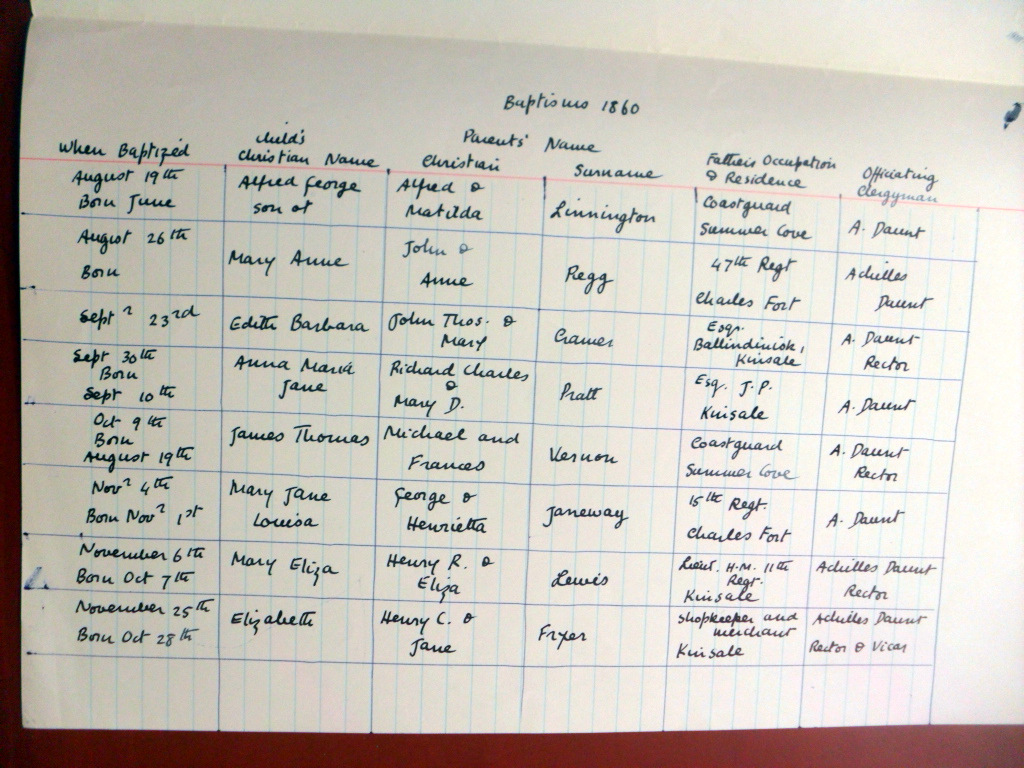 Baptisms 1860
When Baptized
Child's
Christian Name
Parents' Name
Christian
Surname
Father's Occupation
& Residence
Officiating
Clergyman
August 19th
Born June
Alfred George
son of
Alfred &
Matilda
Linnington
Coastguard
Summer Cove
A. Daunt
August 26th
Born
Mary Anne
John &
Anne
Regg
47th Regt
Charles Fort
Achilles
Daunt
Sept r 23rd
Edith Barbara
John Thos. &
Mary
Cramer
Esqr.
Kinsale
A. Daunt
Rector
Sept 30th
Born
Sept 10th
Anna Maria
Jane
Richard Charles
&
Mary D.
Pratt
Esq. J.P.
Kinsale
A. Daunt
Oct 9th
Born
August 19th
James Thomas
Michael and
Frances
Vernon
Coastguard
Summer Cove
A. Daunt
Rector
Nov r 4th
Born Nov r 1st
Mary Jane
Louisa
George &
Henrietta
Janeway
15th Regt.
Charles Fort
A. Daunt
November 6th
Born Oct 7th
Mary Eliza
Henry R. &
Eliza
Lewis
Lieut. H.M. 11th
Regt.
Kinsale
Achilles Daunt
Rector
November 25th
Born Oct 28th
Elizabeth
Henry C. &
Jane
Fryer
Shopkeeper and
merchant
Kinsale
Achilles Daunt
Rector & Vicar